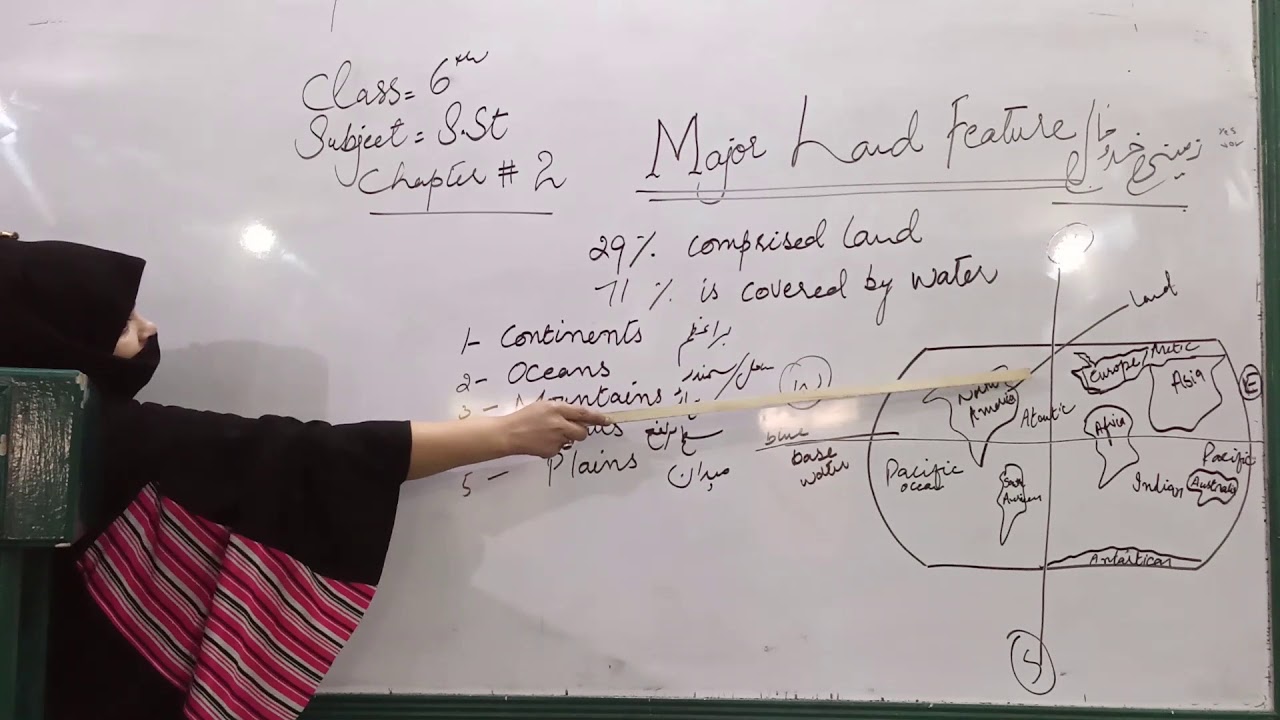 Class = 6th
Subject = S.St
Chapter # 2
Major Land Feature زمینی خدوخال
29% comprised Land
71% is covered by water
1- Continents براعظم
2- Oceans سمندر
3- Mountains
5- Plains میدان
W
blue
base
water
Land
Europe
Artic
Asia
E
North
America
Atlantic
Africa
Pacific
ocean
Indian
Pacific
Australia
Antartican
S